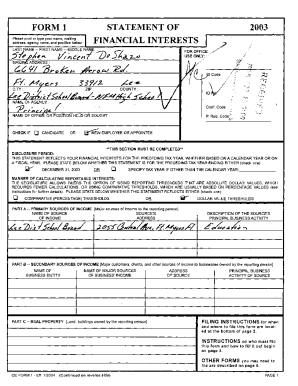 FORM 1 STATEMENT OF 2003
FINANCIAL INTERESTS
Please print or type your name, mailing address, agency name, and position below:
LAST NAME - FIRST NAME - MIDDLE NAME
FOR OFFICE USE ONLY:
Stephen Vincent DeShazo
MAILING ADDRESS
6641 Broken Arrow Rd.
Ft. Myers 33912 Lee
CITY: ZIP: COUNTY:
ID Code
Lee District School Board - NFM High School
NAME OF AGENCY
ID No.
Principal
Conf. Code
NAME OF OFFICE OR POSITION HELD OR SOUGHT
P. Req. Code
CHECK IF CANDIDATE OR NEW EMPLOYEE OR APPOINTEE
**THIS SECTION MUST BE COMPLETED**
DISCLOSURE PERIOD:
THIS STATEMENT REFLECTS YOUR FINANCIAL INTERESTS FOR THE PRECEDING TAX YEAR, WHETHER BASED ON A CALENDAR YEAR OR ON A FISCAL YEAR. PLEASE STATE BELOW WHETHER THIS STATEMENT IS FOR THE PRECEDING TAX YEAR ENDING EITHER
DECEMBER 31, 2003 OR SPECIFY TAX YEAR IF OTHER THAN THE CALENDAR YEAR:
MANNER OF CALCULATING REPORTABLE INTERESTS:
THE LEGISLATURE ALLOWS FILERS THE OPTION OF USING REPORTING THRESHOLDS THAT ARE ABSOLUTE DOLLAR VALUES, WHICH REQUIRES FEWER CALCULATIONS, OR USING COMPARATIVE THRESHOLDS, WHICH ARE USUALLY BASED ON PERCENTAGE VALUES (see instructions for further details). PLEASE STATE BELOW WHETHER THIS STATEMENT REFLECTS EITHER
COMPARATIVE (PERCENTAGE) THRESHOLDS OR DOLLAR VALUE THRESHOLDS
PART A -- PRIMARY SOURCES OF INCOME
NAME OF SOURCE OF INCOME SOURCE'S ADDRESS DESCRIPTION OF THE SOURCE'S PRINCIPAL BUSINESS ACTIVITY
Lee Dist School Board 2055 Central Ave, Ft Myers Fl Education
PART B -- SECONDARY SOURCES OF INCOME
NAME OF BUSINESS ENTITY NAME OF MAJOR SOURCES OF BUSINESS' INCOME ADDRESS OF SOURCE PRINCIPAL BUSINESS ACTIVITY OF SOURCE
PART C -- REAL PROPERTY
FILING INSTRUCTIONS for when and where to file this form are located at the bottom of page 2.
INSTRUCTIONS on who must file this form and how to fill it out begin on page 3.
OTHER FORMS you may need to file are described on page 6.
CE FORM 1 - Eff. 1/2004 (Continued on reverse side) PAGE 1